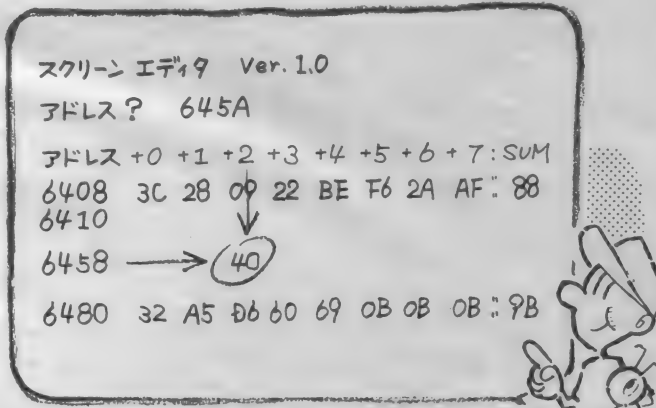 スクリーン エディタ Ver. 1.0
アドレス? 645A
アドレス +0 +1 +2 +3 +4 +5 +6 +7:SUM
6408 3C 28 09 22 BE F6 2A AF: 88
6410
6458 40
6480 32 A5 D6 60 69 0B 0B 0B: 9B